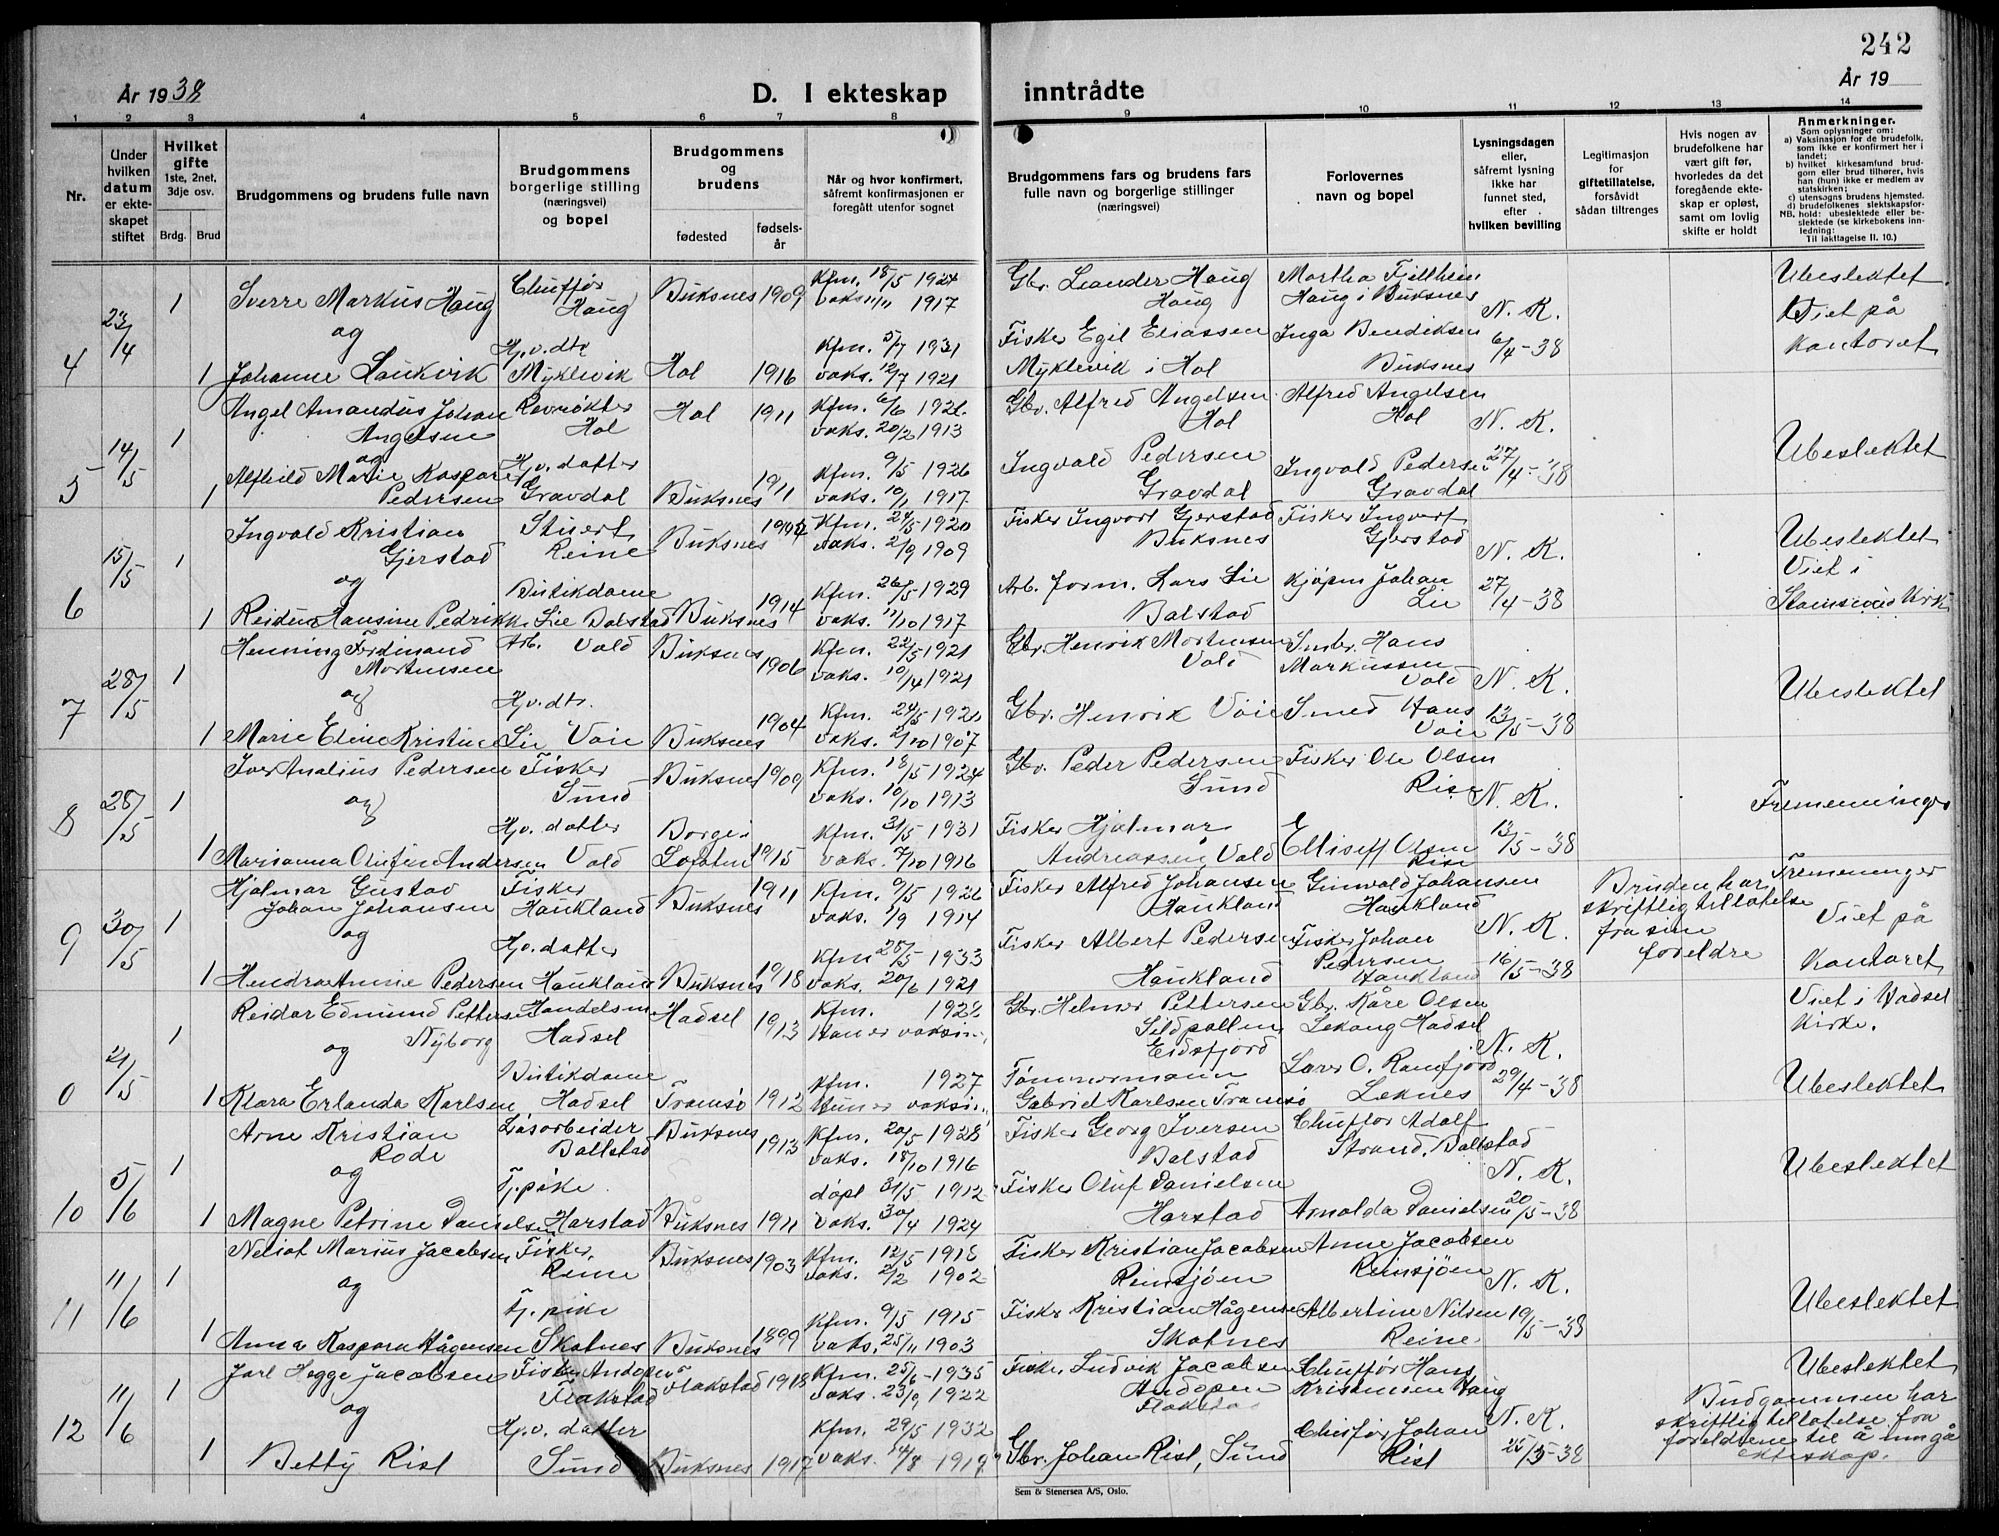 242
År 1938
D. I ekteskap
inntrådte
År 19
1 2 3 4 5 6 7 8 9 10 11 12 13 14
Nr.
Under hvilken datum er ekteskapet stiftet
Hvilket gifte
1ste, 2net, 3dje osv.
Brdg. Brud
Brudgommens og brudens fulle navn
Brudgommens borgerlige stilling (næringsvei) og bopel
Brudgommens og brudens
fødested
fødselsår
Når og hvor konfirmert,
såfremt konfirmasjonen er foregått utenfor sognet
Brudgommens fars og brudens fars
fulle navn og borgerlige stillinger
(næringsvei)
Forlovernes navn og bopel
Lysningsdagen eller, såfremt lysning ikke har funnet sted, efter hvilken bevilling
Legitimasjon for giftetillatelse, forsåvidt sådan tiltrenges
Hvis nogen av brudefolkene har vært gift før, hvorledes da det foregående ekteskap er opløst, samt om lovlig skifte er holdt
Anmerkninger.
Som oplysninger om:
a) Vaksinasjon for de brudefolk, som ikke er konfirmert her i landet;
b) hvilket kirkesamfund brudgom eller brud tilhører, hvis han (hun) ikke er medlem av statskirken;
c) utensogns brudens hjemsted.
d) brudefolkenes slektskapsforhold: ubeslektede eller beslektede (se kirkebokens innledning:
NB.
Til iakttagelse II. 10.)
4 23/4 1 Sverre Markus Haug Chuffør Haug Buksnes 1909 Kfm. 18/5 1924 vaks 11/11 1917 Gbr. Leander Haug Haug Martha Fjelltheim Haug i Buksnes N. K. Ubeslektet. Viet på kontoret
og
1 Johanne Laukvik Hj.v.dtr Myklevik Hol 1916 Kfm. 5/7 1931 vaks. 12/7 1921 Fisker Egil Eliassen Myklevik i Hol Inga Bendiksen Buksnes 6/4-38
5 14/5 1 Angel Amandus Johan Angelsen Revrøkter Hol Hol 1911 Kfm. 6/6 1926 vaks. 20/2 1913 Gbr. Alfred Angelsen Hol Alfred Angelsen Hol N. K. Ubeslektet
og
1 Alfhild Marie Kaspara Pedersen Hj.v. datter Gravdal Buksnes 1911 Kfm. 9/5 1926 vaks. 10/1 1917 Ingvald Pedersen Gravdal Ingvald Pedersen Gravdal 27/4-38
6 15/5 1 Ingvald Kristian Gjerstad Stuert Reine Buksnes 1904 Kfm. 24/5 1920 vaks. 2/9 1909 Fisker Ingvart Gjerstad Buksnes Fisker Ingvart Gjerstad N. K. Ubeslektet Viet i Stamsund Kirke
og
1 Reidun Hansine Pedrikke Lie Butikdame Balstad Buksnes 1914 Kfm. 26/5 1929 vaks. 11/10 1917 Arb. form. Lars Lie Balstad Kjøpm Johan Lie 27/4-38
7 28/5 1 Henning Ferdinand Mortensen Arb. Vold Buksnes 1906 Kfm. 22/5 1921 vaks. 10/4 1921 Gbr. Henrik Mortensen Vold Smbr. Hans Markussen Vold N. K. Ubeslektet
og
1 Marie Eline Kristine Lie Hj.v.dtr. Voie Buksnes 1904 Kfm. 24/5 1920 vaks. 2/10 1907 Gbr. Henrik Voie Smed Hans Voie 13/5-38
8 28/5 1 Iver Analius Pedersen Fisker Sund Buksnes 1909 Kfm. 18/5 1924 vaks. 10/10 1913 Gbr. Peder Pedersen Sund Fisker Ole Olsen Rise N. K. Fremenninger
og
1 Marianna Olufine Andersen Hj.v. datter Vold Borge i Lofoten 1915 Kfm. 31/5 1931 vaks. 7/10 1916 Fisker Hjalmar Andreassen Vold Elliseff Olsen Rise 13/5-38
9 30/5 1 Hjalmar Gustav Johan Johansen Fisker Haukland Buksnes 1911 Kfm. 9/5 1926 vaks. 1/9 1914 Fisker Alfred Johansen Haukland Ginvald Johansen Haukland N. K. Bruden har skriftlig tillatelse fra sine foreldre Fremenninger Viet på kontoret
og
1 Hendra Annie Pedersen Hj.v.datter Haukland Buksnes 1918 Kfm 28/5 1933 vaks. 20/6 1921 Fisker Albert Pedersen Haukland Fisker Johan Pedersen Haukland 16/5-38
0 21/5 1 Reidar Edmund Pettersen Nyborg Handelsm Hadsel Hadsel 1913 Kfm. 1928 Han er vaksin. Gbr. Helmer Pettersen Sildpollen Eidsfjord Gbr. Kåre Olsen Lekang Hadsel N. K. Viet i Hadsel Kirke.
og
1 Klara Erlanda Karlsen Butikdame Hadsel Tromsø 1912 Kfm. 1927 Hun er vaksin. Tømmermann Gabriel Karlsen Tromsø Laur O. Ramfjord Leknes 29/4-38 Ubeslektet
10 5/6 1 Arne Kristian Rode Løsarbeider Ballstad Buksnes 1913 Kfm. 20/5 1928 vaks. 18/10 1916 Fisker Georg Iversen Balstad Chuffør Adolf Strand, Ballstad N. K. Ubeslektet
og
1 Magne Petrine Danielsen Tj.pike. Harstad Buksnes 1911 døpt 31/5 1912 vaks. 30/4 1924 Fisker Oluf Danielsen Harstad Arnolda Danielsen 20/5-38
11 11/6 1 Neliot Marius Jacobsen Fisker, Reine Buksnes 1903 Kfm. 12/5 1918 vaks. 2/2 1902 Fisker Kristian Jacobsen Reinsjøen Anne Jacobsen Reinsjøen N. K. Ubeslektet
og
1 Anna Kaspara Hågensen Tj. pike Skotnes Buksnes 1899 Kfm. 9/5 1915 vaks. 25/11 1903 Fisker Kristian Hågensen Skotnes Albertine Nilsen Reine 19/5-38
12 11/6 1 Jarl Hegge Jacobsen Fisker Andopen Flakstad Flakstad 1918 Kfm. 25/6-1935 vaks. 23/9 1922 Fisker Ludvik Jacobsen Andopen Flakstad Chuffør Hans Kristensen Haug N. K. Ubeslektet Brudgommen har skriftlig tillatelse fra foreldrene til å inngå ekteskap.
og
1 Betty Rist Hj.v. datter Sund Buksnes 1917 Kfm. 29/5 1932 vaks. 14/8 1919 Gbr. Johan Rist, Sund Chuffør Johan Rist 25/5-38
Sem & Stenersen A/S, Oslo.